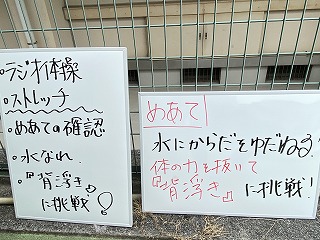 ・ラジオ体操
・ストレッチ
・めあての確認
・水なれ
・『背浮き』
に挑戦!
めあて
水にからだをゆだねる!
体の力を抜いて
『背浮き』に挑戦!